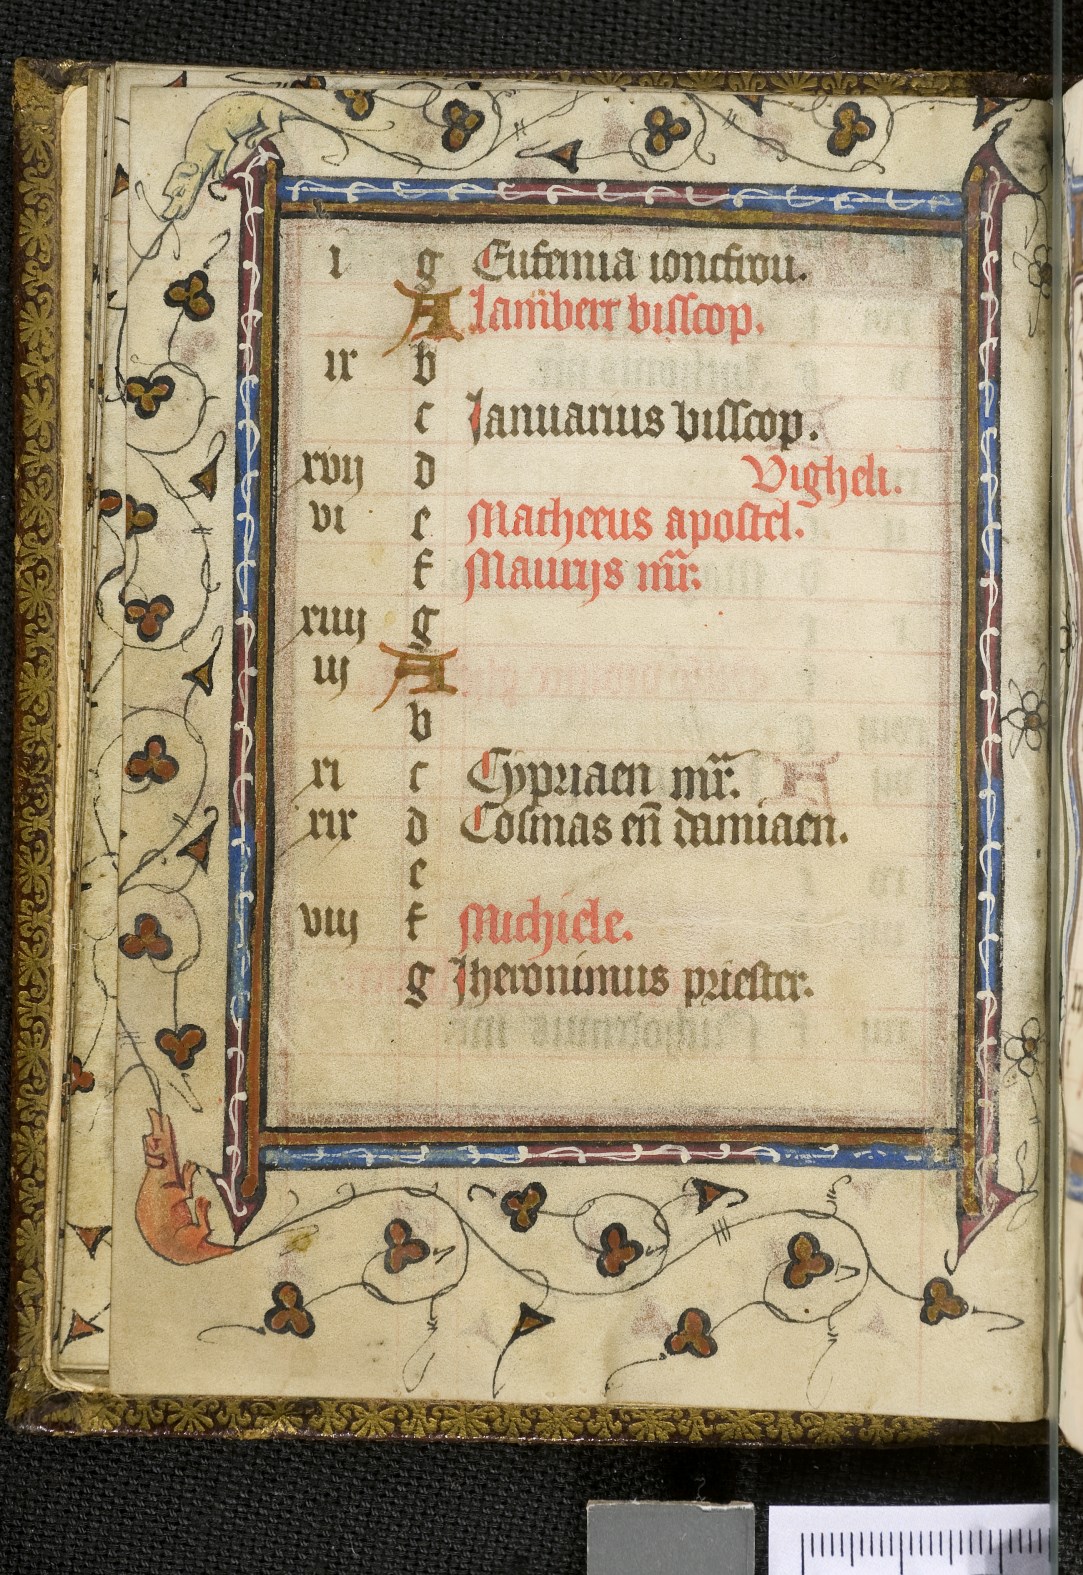 i g Eufemia ioncfrou.
A Lambert bisscop.
ix b
c Januarius bisscop.
xvij d Vigheli.
vi e Matheeus apostel.
f Maurijs mr.
xiiij g
iij A
b
xi c Cypriaen mr.
xix d Cosmas en̄ damiaen.
e
viij f Michiele.
g Jheronimus priester.